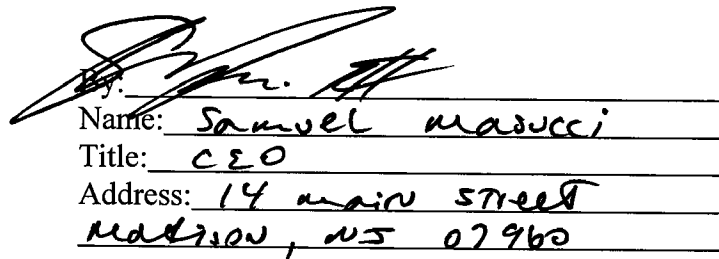 By:
Name: Samuel Masucci
Title: CEO
Address: 14 main street
Madison, NJ 07960